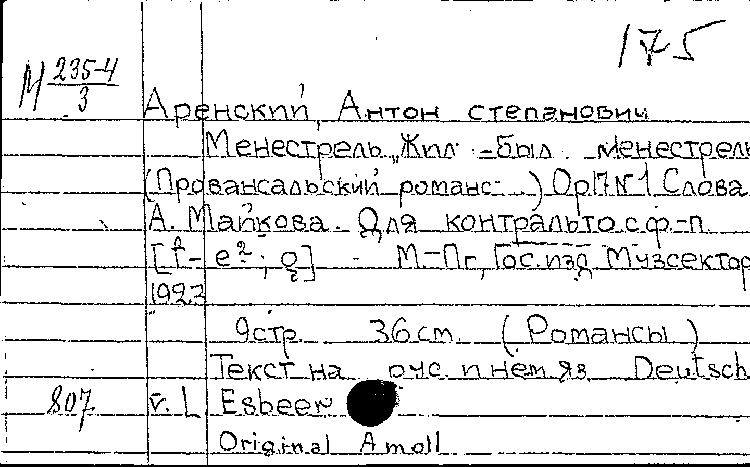 175
М 235-4/3
Аренский, Антон Степанович
Менестрель „Жил-был менестрель
(Провансальский романс) Op.17 №1 Слова
А. Майкова. Для контральто с ф.-п.
[f - e²; g] М-Пг, Гос. изд Музсектор
1923
9 стр. 36 см. (Романсы)
Текст на рус. и нем. яз. Deutsch
807 v. L Esbeer
Original A moll